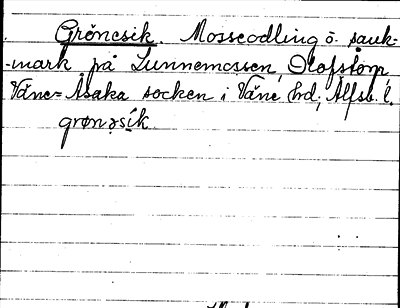 Gröncsik. Mosseodling o. sank-
-mark på Lunnemossen, Olofstorp
Väne-Åsaka socken i Väne hd; Älfsb. l.
grønəsik